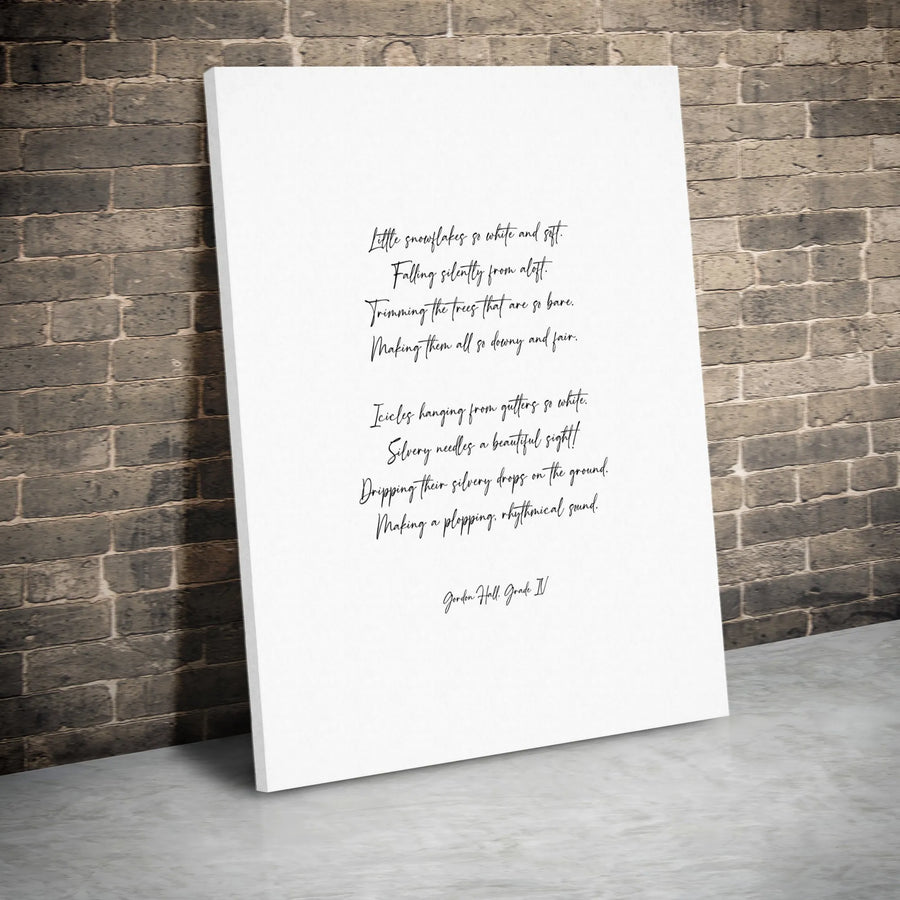 Little snowflakes so white and soft.
Falling silently from aloft.
Trimming the trees that are so bare.
Making them all so downy and fair.
Icicles hanging from gutters so white.
Silvery needles a beautiful sight!
Dripping their silvery drops on the ground.
Making a plopping, rhythmical sound.
Gordon Hall, Grade IV